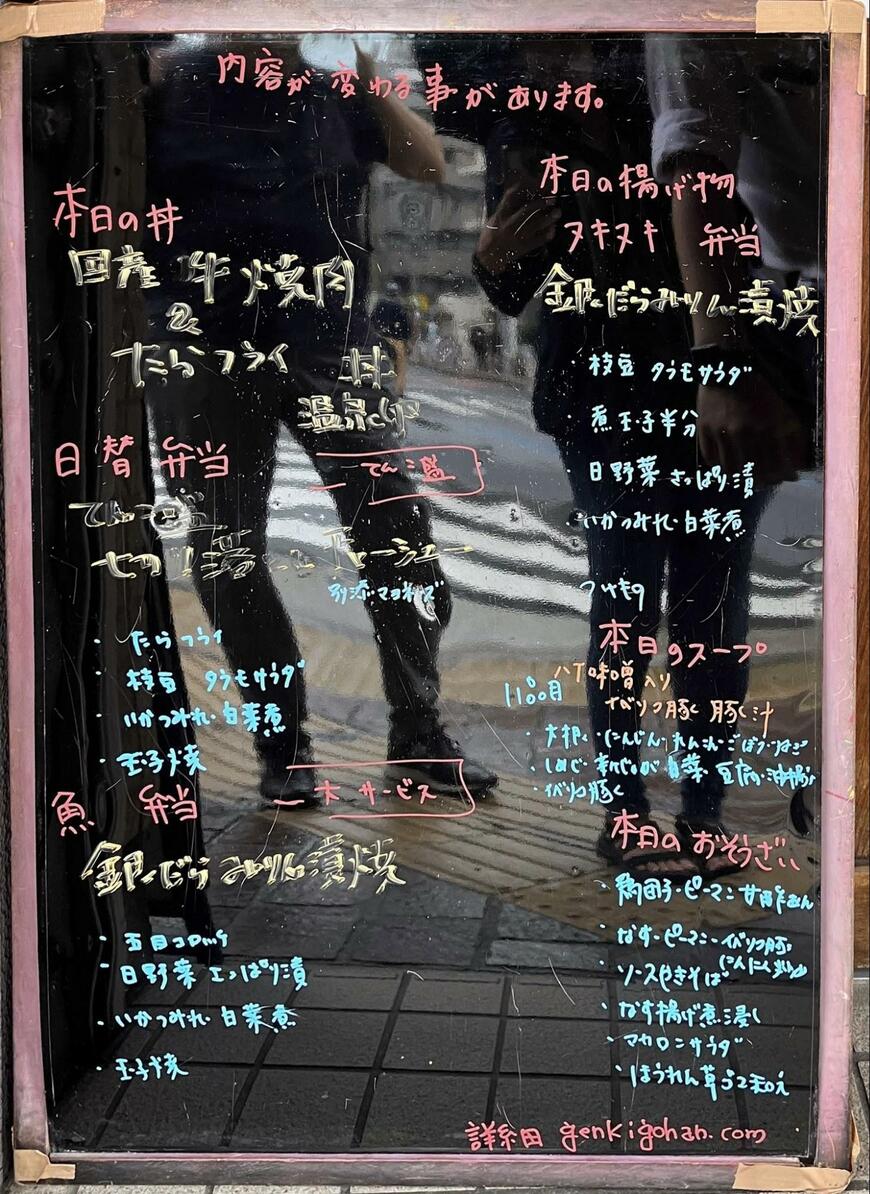 内容が変わる事があります。
本日の丼
国産牛焼肉
&
たらフライ 丼
温泉
日替弁当 てんこ盛
てんこ盛
チャーシュー
別添・マヨネーズ
・たらフライ
・枝豆 タラモサラダ
・いかつみれ・白菜煮
・玉子焼
魚 弁当 サービス
銀だらみりん漬焼
・五目コロッケ
・日野菜さっぱり漬
・いかつみれ・白菜煮
・玉子焼
本日の揚げ物
ヌキヌキ 弁当
銀だらみりん漬焼
・枝豆 タラモサラダ
・煮玉子半分
・日野菜さっぱり漬
・いかつみれ・白菜煮
つけもの
本日のスープ
八丁味噌入り
イベリコ豚 豚汁
・大根・にんじん・れんこん・ごぼう
・しめじ 白菜・豆腐・油揚
・イベリコ豚
本日のおそうざい
・鶏団子・ピーマン
・なす・ピーマン・イベリコ豚
・ソースやきそば
・なす揚げ煮浸し
・マカロニサラダ
・ほうれん草ごま和え
詳細 genkigohan.com